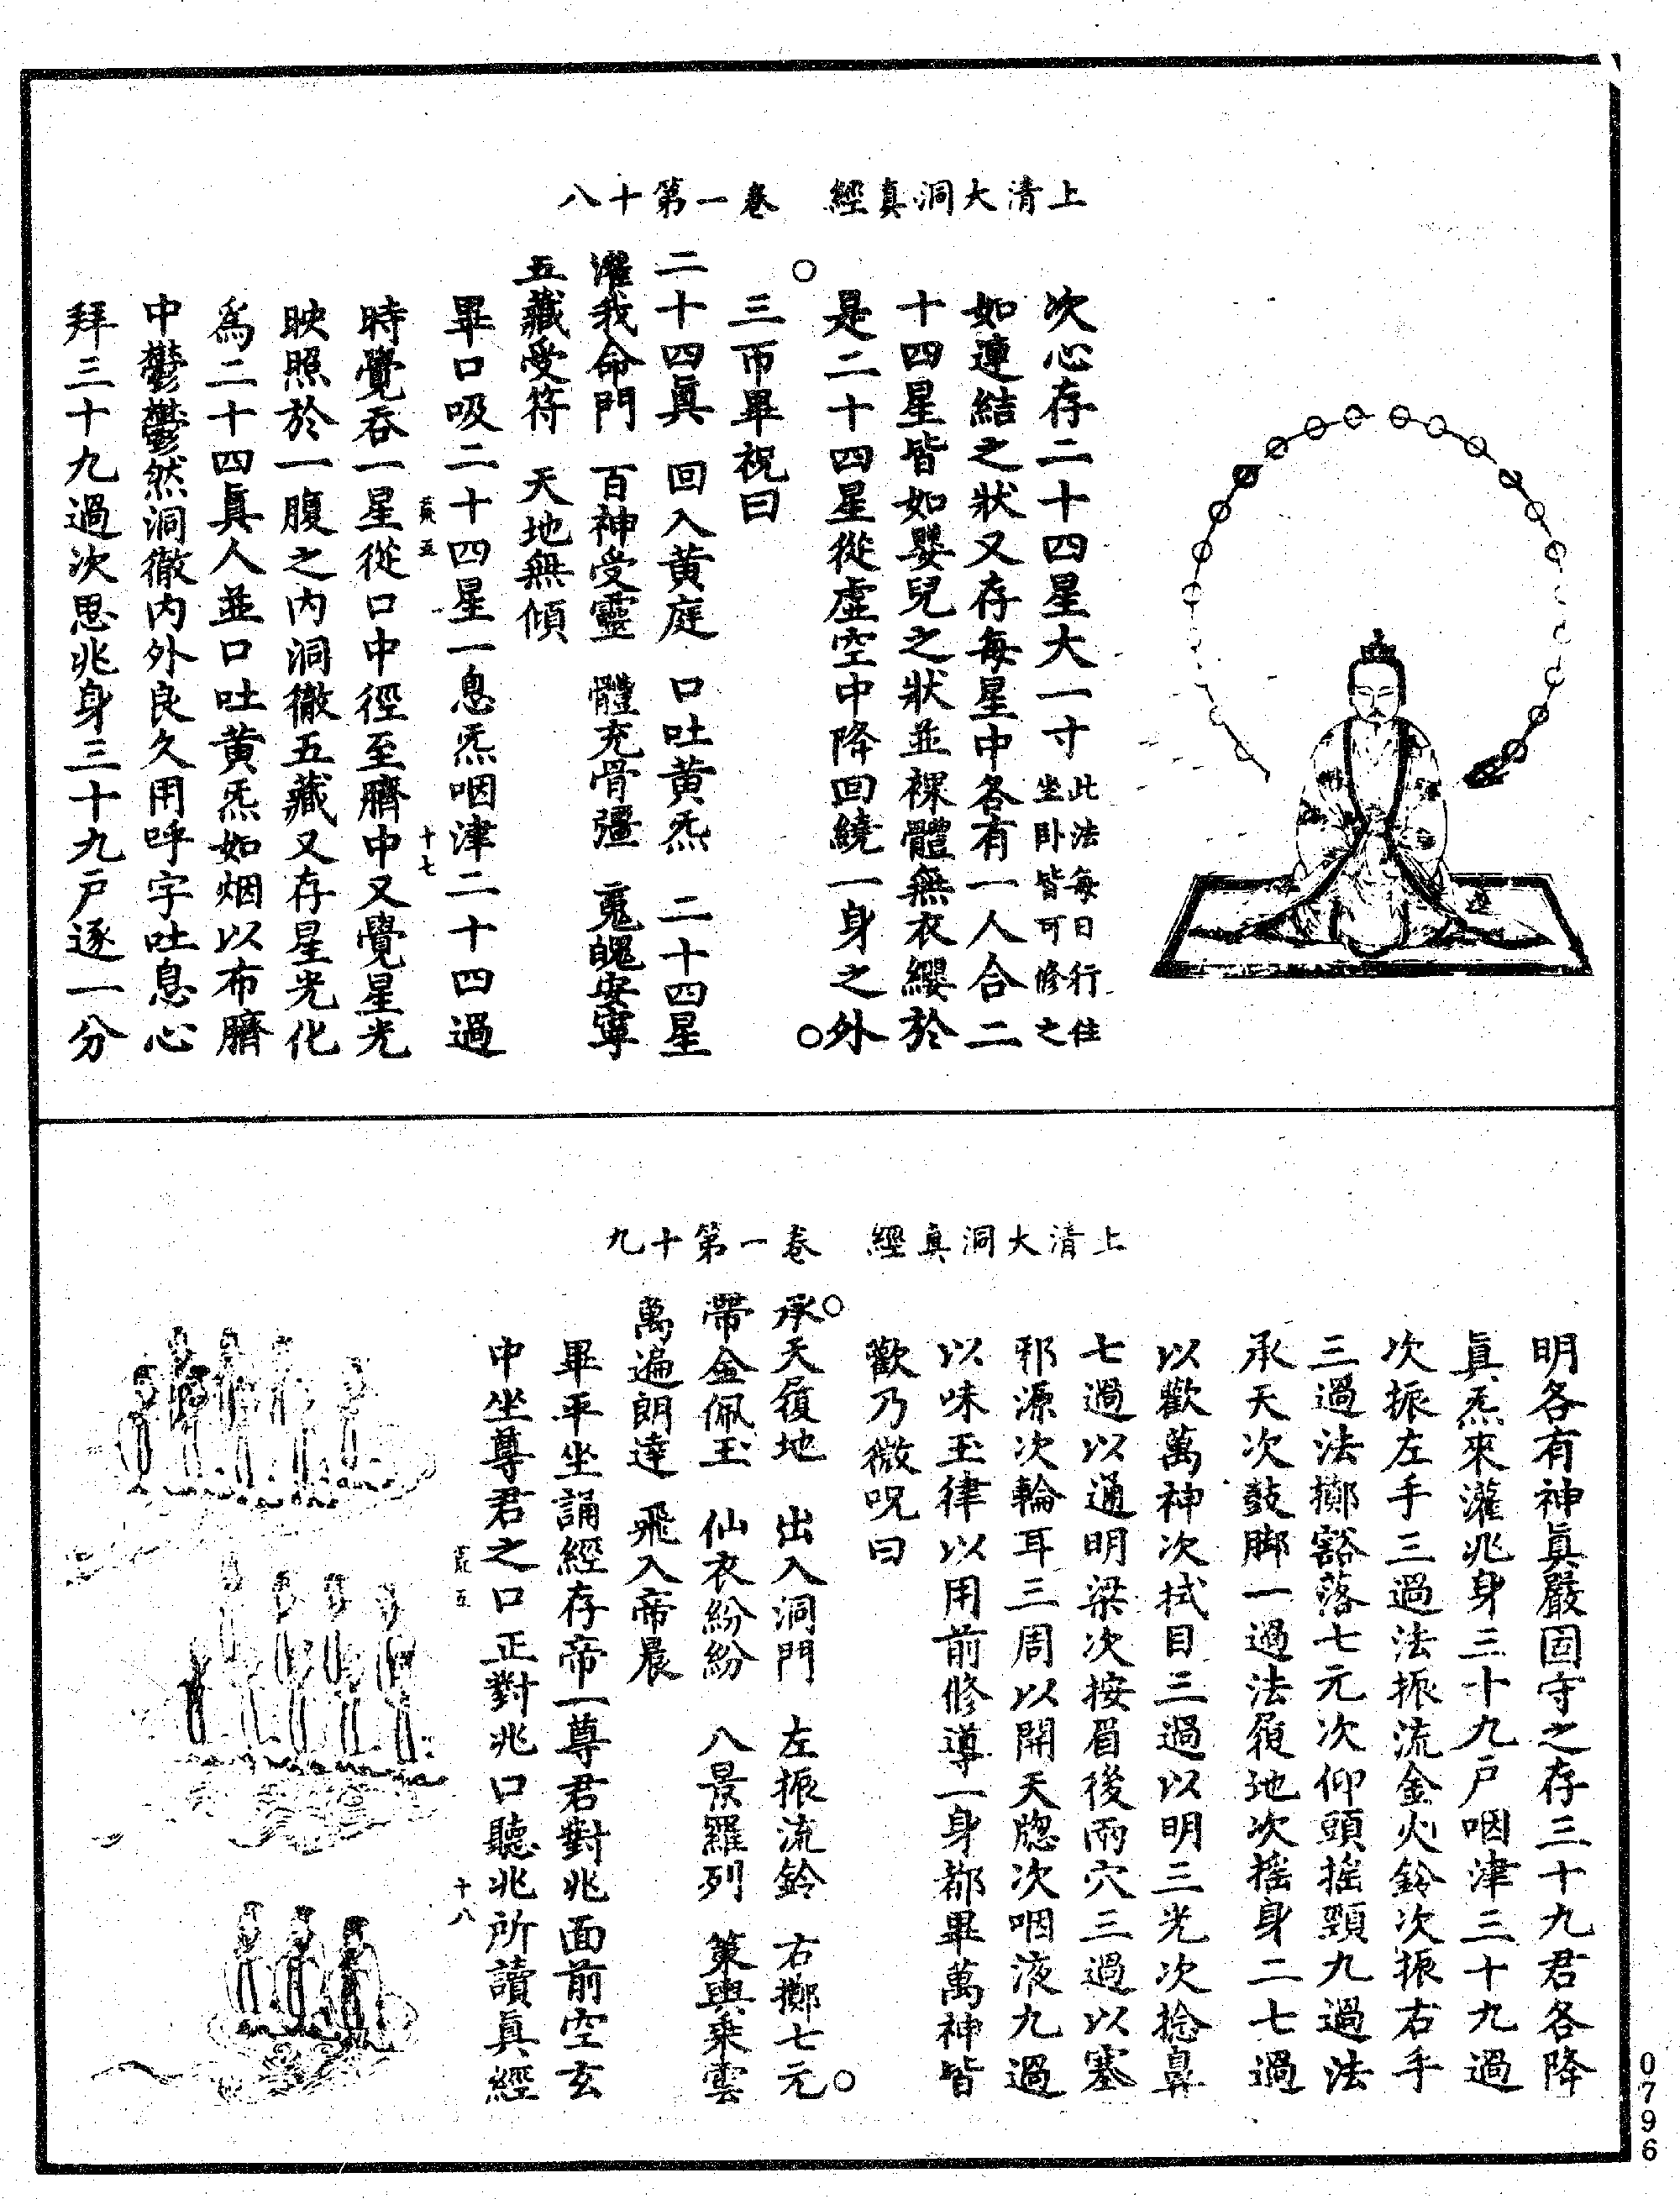 上清大洞真經　卷一第十八
次心存二十四星大一寸此法每日行住坐卧皆可修之
如連結之狀又存每星中各有一人合二
十四星皆如嬰兒之狀並裸體無衣纓於
是二十四星從虛空中降回繞一身之外
三帀畢祝曰
○二十四眞　回入黄庭　口吐黄炁　二十四星
灌我命門　百神受靈　體充骨彊　䰟魄安寧
五藏受符　天地無傾○
畢口吸二十四星一息炁咽津二十四過
五　十七
時覺吞一星從口中徑至臍中又覺星光
映照於一腹之内洞徹五藏又存星光化
爲二十四眞人並口吐黄炁如烟以布臍
中鬱鬱然洞徹内外良久用呼字吐息心
拜三十九過次思兆身三十九戸逐一分
上清大洞真經　卷一第十九
明各有神眞嚴固守之存三十九君各降
眞炁來灌兆身三十九戸咽津三十九過
次振左手三過法振流金火鈴次振右手
三過法擲豁落七元次仰頭摇頸九過法
承天次鼓脚一過法履地次摇身二七過
以歡萬神次拭目三過以明三光次捻鼻
七過以通明梁次按眉後兩穴三過以塞
邪源次輪耳三周以開天牕次咽液九過
以味玉律以用前修導一身都畢萬神皆
歡乃微呪曰
○承天履地　出入洞門　左振流鈴　右擲七元
帶金佩玉　仙衣紛紛　八景羅列　策輿乘雲
萬遍朗達　飛入帝晨○
畢平坐誦經存帝一尊君對兆面前空玄
中坐尊君之口正對兆口聽兆所讀眞經
五　十八
0796